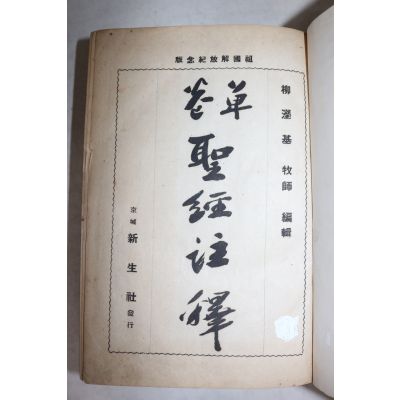 祖國解放紀念版
柳瀅基 牧師 編輯
單卷
聖經註釋
京城 新生社 發行